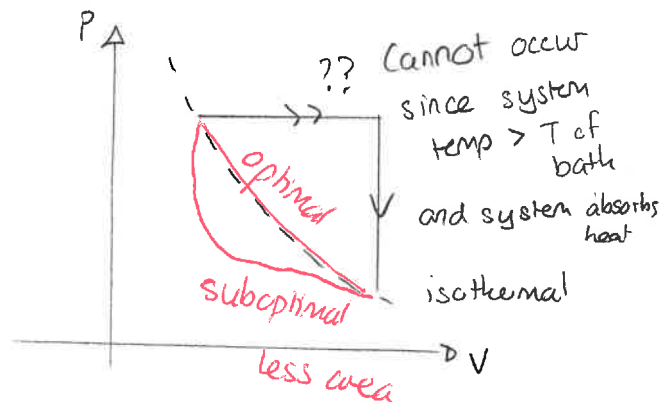 P
??
Cannot occur
since system
temp > T cf
bath
and system absorbs
heat
optimal
isothermal
suboptimal
V
less area